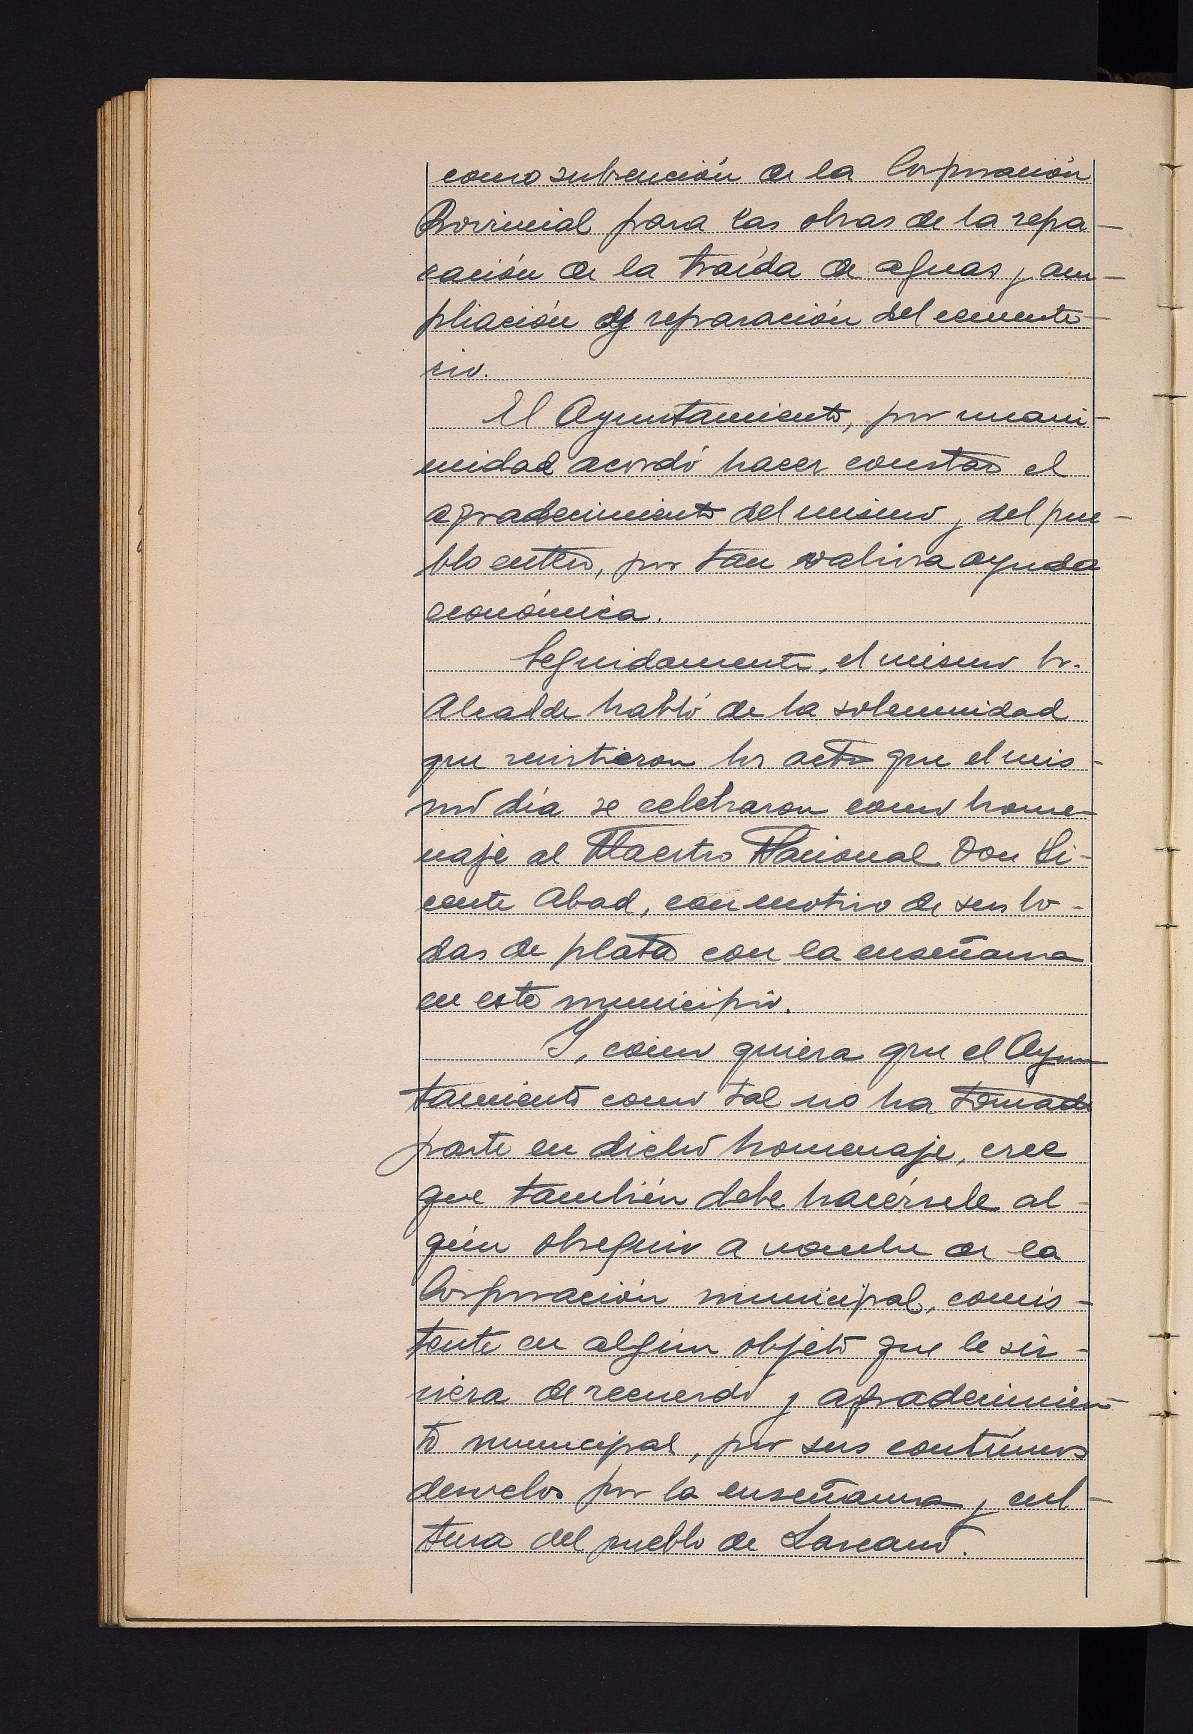 como subvención de la Corporación
Provincial para las obras de la repa-
ración de la traída de aguas y am-
pliación y reparación del cemente-
rio.
El Ayuntamiento, por unani-
midad acordó hacer constar el
agradecimiento del mismo y del pue-
blo entero, por tan valiosa ayuda
económica.
Seguidamente, el mismo Sr.
Alcalde habló de la solemnidad
que revistieron los actos que el mis-
mo día se celebraron como home-
naje al Maestro Nacional Don Vi-
cente Abad, con motivo de sus bo-
das de plata con la enseñanza
en este municipio.
Y, como quiera que el Ayun-
tamiento como tal no ha tomado
parte en dicho homenaje, cree
que también debe hacérsele al-
gún obsequio a nombre de la
Corporación municipal, consis-
tente en algún objeto que le sir-
viera de recuerdo y agradecimien-
to municipal, por sus contínuos
desvelos por la enseñanza y cul-
tura del pueblo de Lazcano.